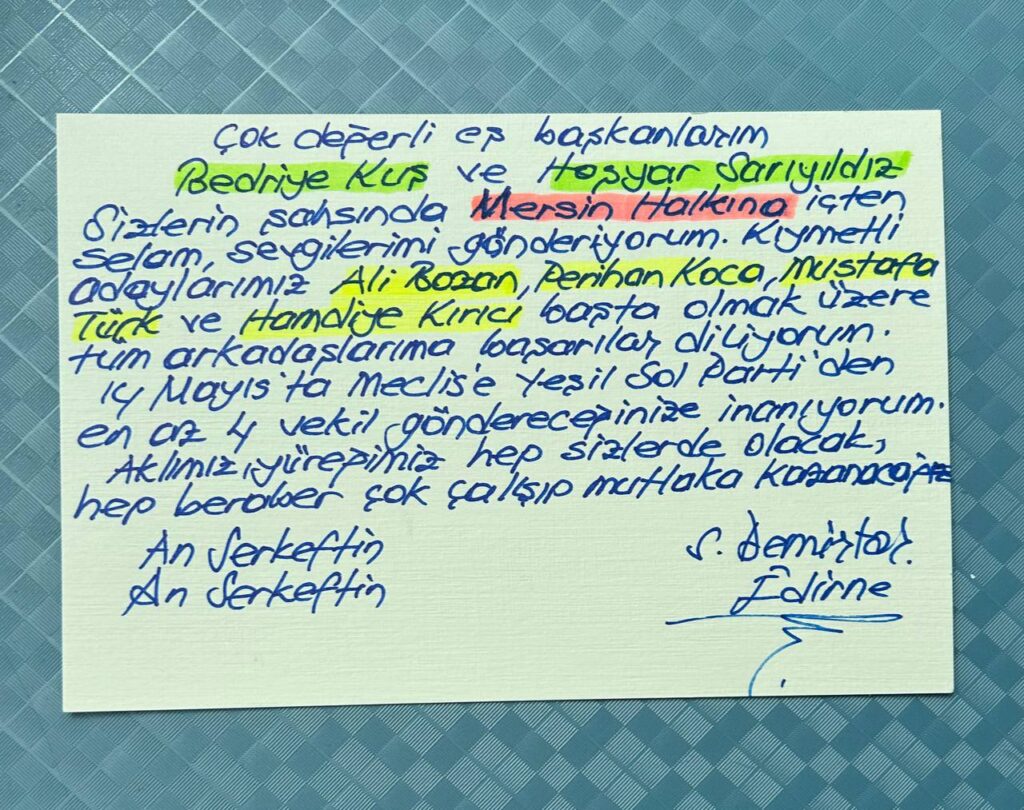 Çok değerli eş başkanlarım
Bedriye Kuş ve Hoşyar Sarıyıldız
Sizlerin şahsında Mersin Halkına içten
selam, sevgilerimi gönderiyorum. Kıymetli
adaylarımız Ali Bozan, Perihan Koca, Mustafa
Türk ve Hamdiye Kırıcı başta olmak üzere
tüm arkadaşlarıma başarılar diliyorum.
14 Mayıs'ta Meclis'e Yeşil Sol Parti'den
en az 4 vekil göndereceğinize inanıyorum.
Aklımız, yüreğimiz hep sizlerde olacak,
hep beraber çok çalışıp mutlaka kazanacağız
An Serkeftin
An Serkeftin
S. Demirtaş.
Edirne